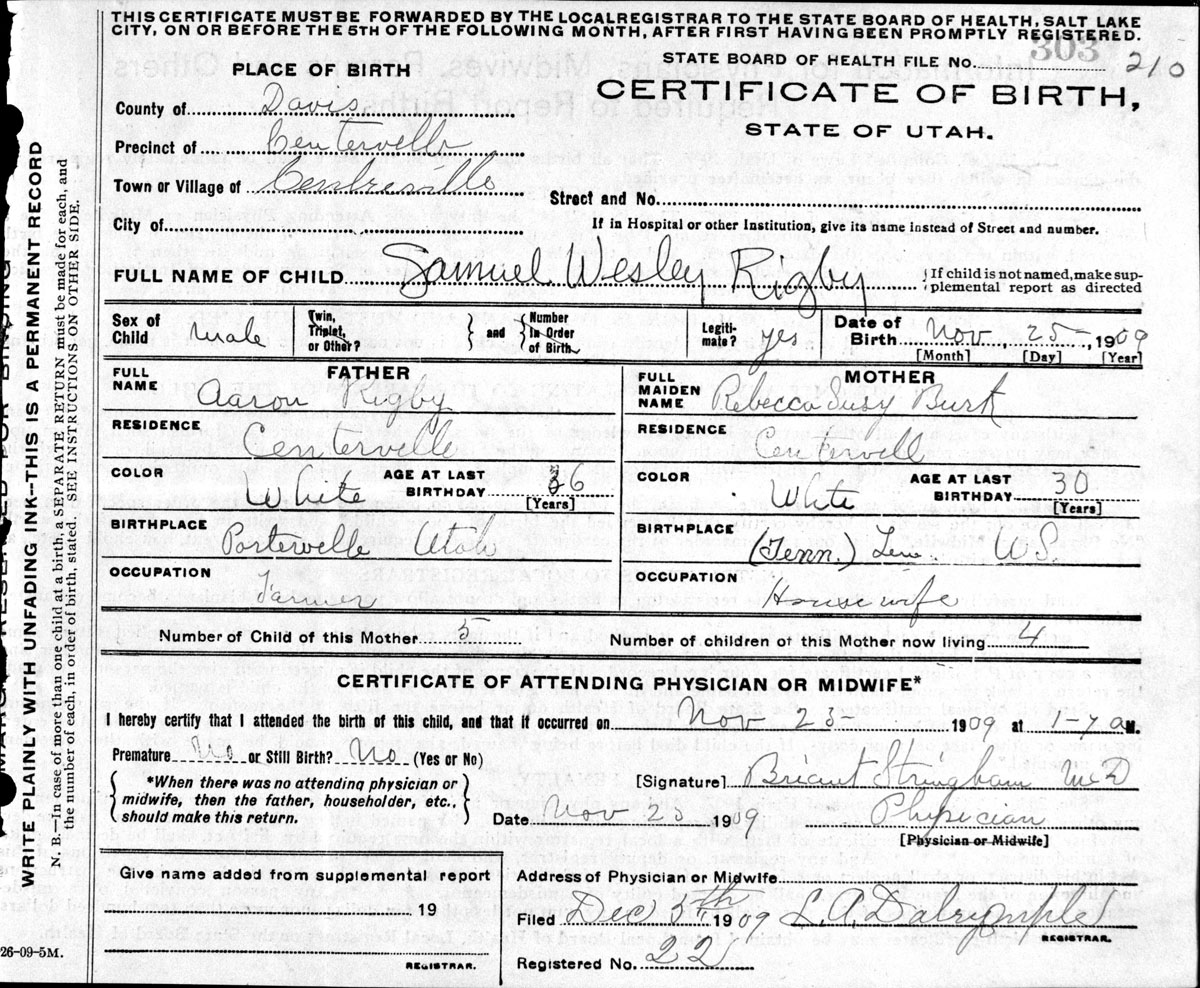 THIS CERTIFICATE MUST BE FORWARDED BY THE LOCAL REGISTRAR TO THE STATE BOARD OF HEALTH, SALT LAKE
CITY, ON OR BEFORE THE 5TH OF THE FOLLOWING MONTH, AFTER FIRST HAVING BEEN PROMPTLY REGISTERED.
303
STATE BOARD OF HEALTH FILE No. 210
PLACE OF BIRTH
CERTIFICATE OF BIRTH,
STATE OF UTAH.
County of Davis
Precinct of Centerville
Town or Village of Centreville
Street and No.
City of
If in Hospital or other Institution, give its name instead of Street and number.
FULL NAME OF CHILD Samuel Wesley Rigby
If child is not named, make sup-
plemental report as directed
Sex of Child male
Twin, Triplet, or Other?
and
Number in Order of Birth
Legiti-mate? yes
Date of Birth Nov. 25, 1909
[Month] [Day] [Year]
FATHER
FULL NAME Aaron Rigby
RESIDENCE Centerville
COLOR White
AGE AT LAST BIRTHDAY 36
[Years]
BIRTHPLACE Porterville Utah
OCCUPATION Farmer
MOTHER
FULL MAIDEN NAME Rebecca Susy Burk
RESIDENCE Centervell
COLOR White
AGE AT LAST BIRTHDAY 30
[Years]
BIRTHPLACE (Tenn.) U.S.
OCCUPATION Housewife
Number of Child of this Mother 5
Number of children of this Mother now living 4
CERTIFICATE OF ATTENDING PHYSICIAN OR MIDWIFE*
I hereby certify that I attended the birth of this child, and that it occurred on Nov 25 1909 at 1-7 a M.
Premature No or Still Birth? No (Yes or No)
*When there was no attending physician or
midwife, then the father, householder, etc.,
should make this return.
[Signature] Briant Stringham MD
Date Nov 25 1909 Physician
[Physician or Midwife]
Give name added from supplemental report
19
REGISTRAR.
Address of Physician or Midwife
Filed Dec 5th 1909 L. A. Dalrymple
REGISTRAR.
Registered No. 22
WRITE PLAINLY WITH UNFADING INK—THIS IS A PERMANENT RECORD
N. B.—In case of more than one child at a birth, a SEPARATE RETURN must be made for each, and
the number of each, in order of birth, stated. SEE INSTRUCTIONS ON OTHER SIDE.
26-09-5M.